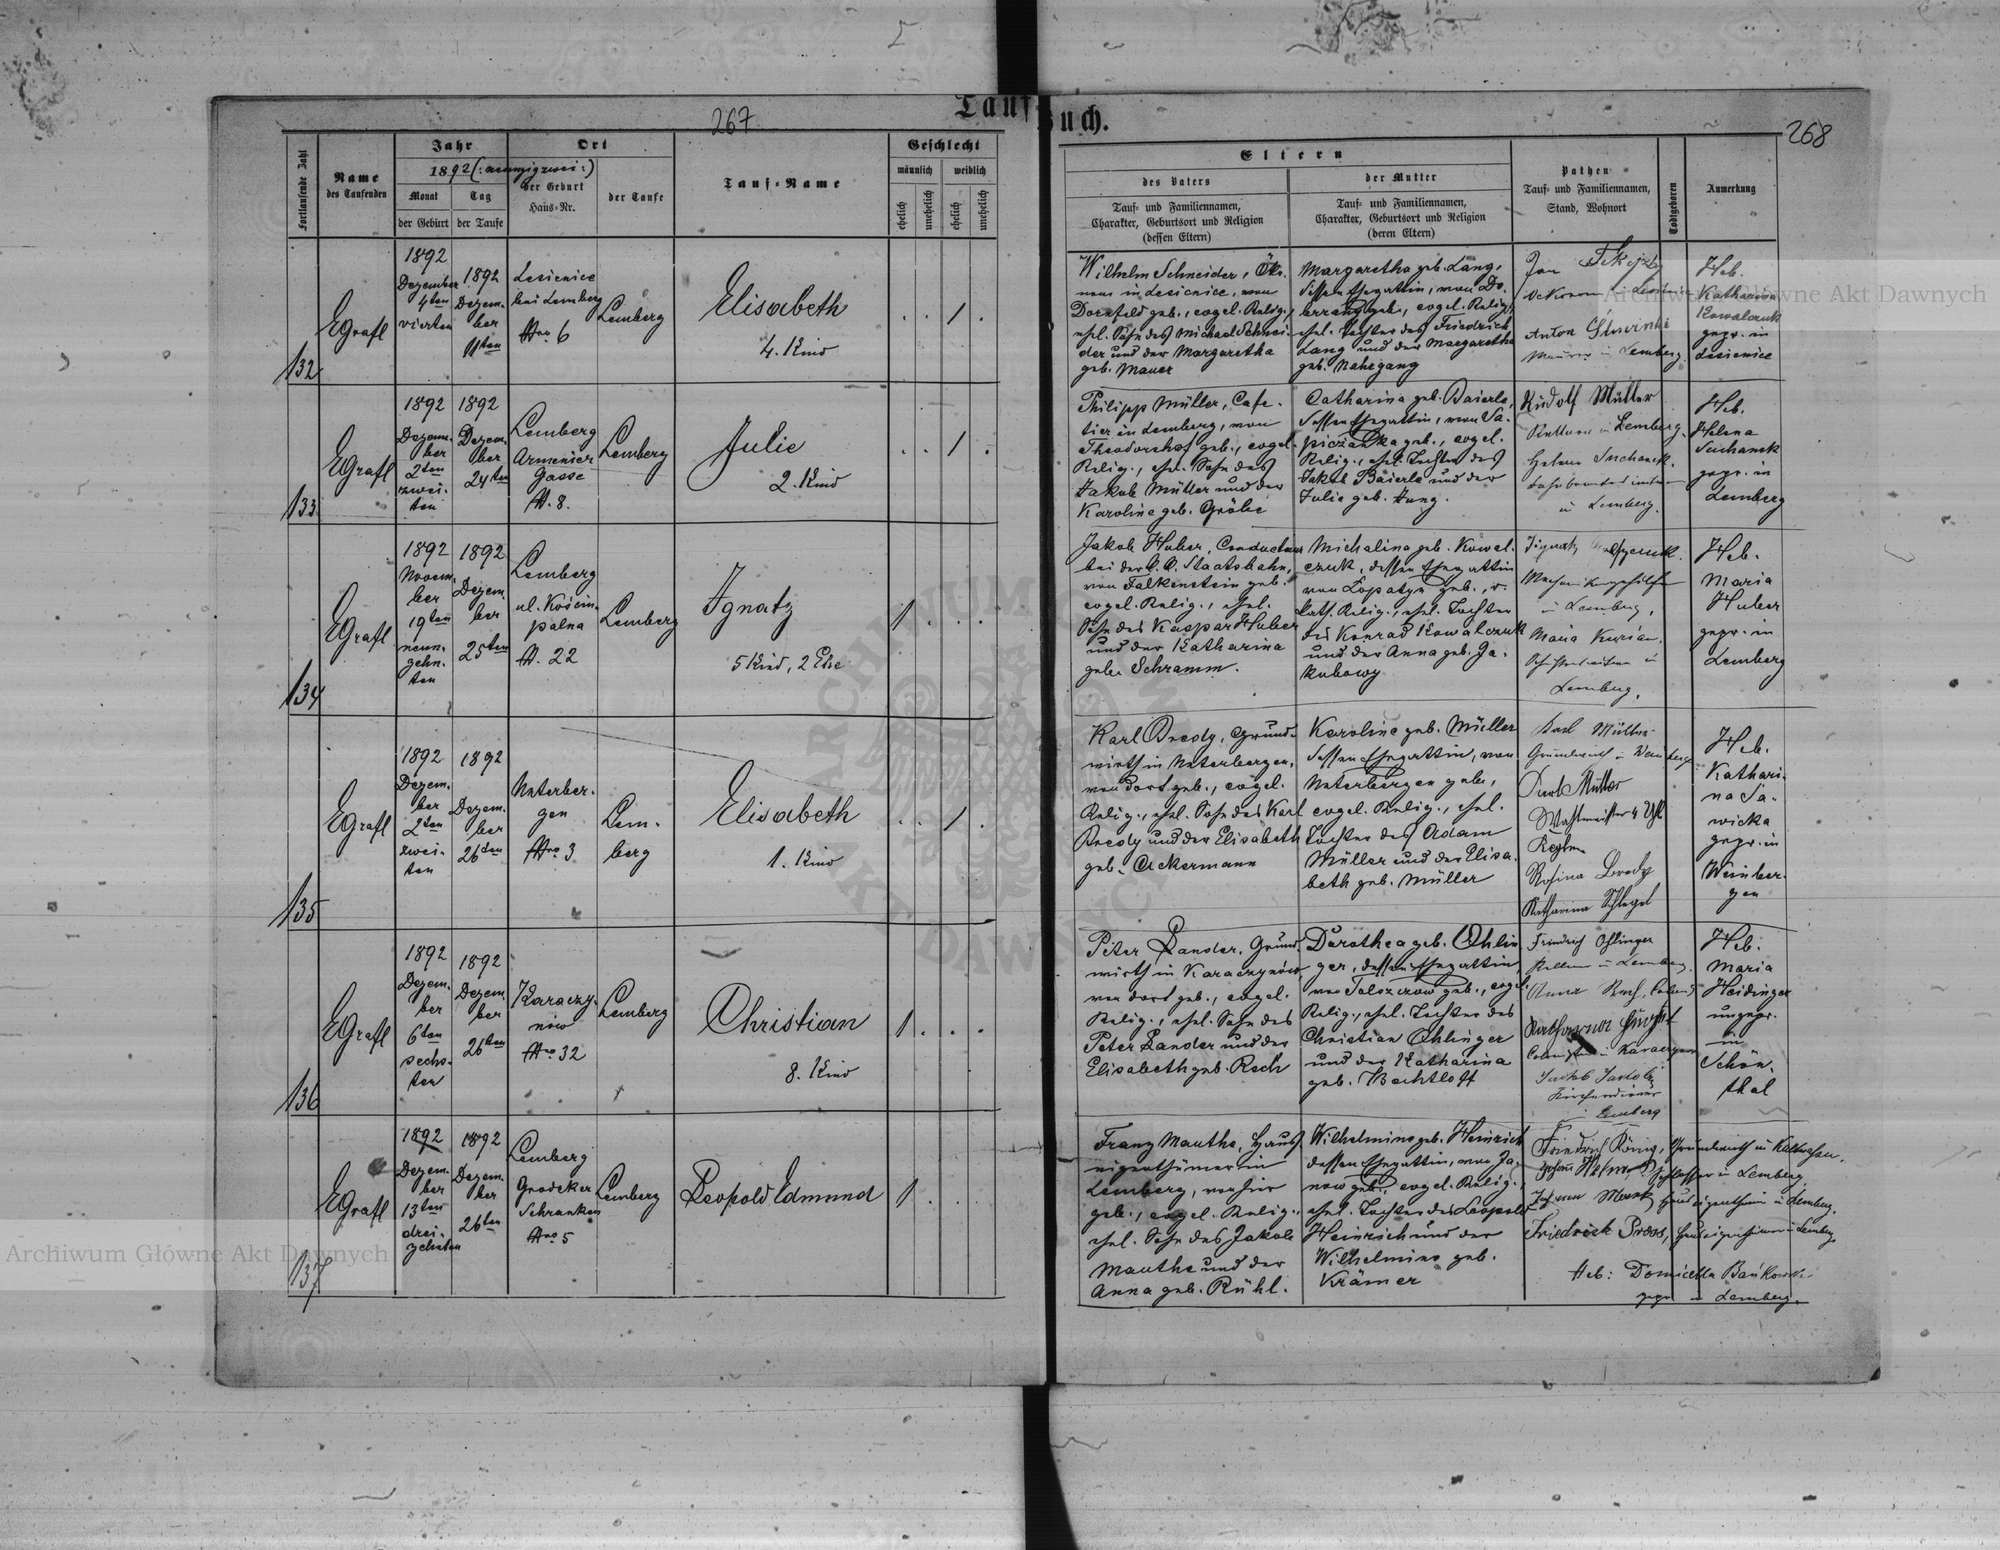 267
Tauf-Buch.
268
Fortlaufende Zahl
Name
des Taufenden
Jahr
1892 (: neunzigzwei :)
Monat
der Geburt
Tag
der Taufe
Ort
der Geburt
Haus-Nr.
der Taufe
Tauf-Name
Geschlecht
männlich
weiblich
ehelich
unehelich
ehelich
unehelich
Eltern
des Vaters
Tauf- und Familiennamen,
Charakter, Geburtsort und Religion
(dessen Eltern)
der Mutter
Tauf- und Familiennamen,
Charakter, Geburtsort und Religion
(deren Eltern)
Pathen
Tauf- und Familiennamen,
Stand, Wohnort
Todtgeboren
Anmerkung
132
EGrafl
1892
Dezember
4ten
vierten
1892
Dezem-
ber
11ten
Lesienice
bei Lemberg
Nro 6
Lemberg
Elisabeth
4. Kind
. . / .
Wilhelm Schneider, Öko-
nom in Lesienice, von
Dornfeld geb., evgel. Relig.,
ehel. Sohn des Michael Schnei-
der und der Margaretha
geb. Mauer
Margaretha geb. Lang,
dessen Ehegattin, von
geb., evgel. Relig.,
ehel. Tochter des Friedrich
Lang und der Margaretha
geb. Nahrgang
Jan
Anton
Maurer in Lemberg
Heb.
Katharina
Kowalczuk
gepr. in
Lesienice
133
EGrafl
1892
Dezem-
ber
2ten
zwei-
ten
1892
Dezem-
ber
24ten
Lemberg
Armenier
Gasse
N. 8.
Lemberg
Julie
2. Kind
. . / .
Philipp Müller, Cafe-
tier in Lemberg, von
Theodorshof geb., evgel.
Relig., ehel. Sohn des
Jakob Müller und der
Karoline geb. Gröbe
Catharina geb. Baierle,
dessen Ehegattin, von Sa-
piezanka geb., evgel.
Relig., ehel. Tochter des
Jakob Baierle und der
Julie geb. Jung.
Rudolf Müller
in Lemberg.
Helene Suchanek
in Lemberg.
Heb.
Helena
Suchanek
gepr. in
Lemberg
134
EGrafl
1892
Novem-
ber
19ten
neun-
zehn-
ten
1892
Dezem-
ber
25ten
Lemberg
ul. Kościu-
palna
N. 22
Lemberg
Ignatz
5 Kind, 2 Ehe
1 . . .
Jakob Huber, Conducteur
bei der k. k. Staatsbahn,
von Falkenstein geb.
evgel. Relig., ehel.
Sohn des Kaspar Huber
und der Katharina
gebr. Schramm.
Michalina geb. Kowal-
czuk, dessen Ehegattin
von Lopatyn geb., r.
kath. Relig., ehel. Tochter
des Konrad Kowalczuk
und der Anna geb. Ja-
kubowy
Ignatz
in Lemberg,
Maria
in
Lemberg,
Heb.
Maria
Huber
gepr. in
Lemberg
135
EGrafl
1892
Dezem-
ber
2ten
zwei-
ten
1892
Dezem-
ber
26ten
Unterber-
gen
Nro 3
Lem-
berg
Elisabeth
1. Kind
. . / .
Karl Bredy, Grund-
wirth in Unterbergen,
von dort geb., evgel.
Relig., ehl. Sohn des Karl
Bredy und der Elisabeth
geb. Ackermann
Karoline geb. Müller
dessen Ehegattin, von
Unterbergen geb.,
evgel. Relig., ehel.
Tochter des Adam
Müller und der Elisa-
beth geb. Müller
Karl Müller
Grundwirth in Weinbergen
Müller
Wachtmeister 4
Rosina Bredy
Katharina Schlegel
Heb.
Kathari-
na Sa-
wicka
gepr. in
Weinber-
gen
136
EGrafl
1892
Dezem-
ber
6ten
sechs-
ten
1892
Dezem-
ber
26ten
Karaczy-
nów
Nro 32
Lemberg
Christian
8. Kind
1 . . .
Peter Sander, Grund-
wirth in Karaczynów,
von dort geb., evgel.
Relig., ehel. Sohn des
Peter Sander und der
Elisabeth geb. Rech
Dorothea geb. Ohlin-
ger, dessen Ehegattin,
von geb., evgel.
Relig., ehel. Tochter des
Christian Ohlinger
und der Katharina
geb. Bechtloff
Friedrich Ohlinger
in Lemberg.
Anna Rech,
Katharina
in
Jakob Jakobi
Kirchendiener
in Lemberg
Heb.
Maria
Heidinger
ungepr.
in
Schön-
thal
137
EGrafl
1892
Dezem-
ber
13ten
drei-
zehnten
1892
Dezem-
ber
26ten
Lemberg
Grodeker
Schranken
Nro 5
Lemberg
Leopold Edmund
1 . . .
Franz Mauthe, Haus-
eigenthümer in
Lemberg, von hier
geb., evgel. Relig.,
ehel. Sohn des Jakob
Mauthe und der
Anna geb. Rühl.
Wilhelmine geb. Heinrich
dessen Ehegattin, von Ja-
now geb., evgel. Relig.,
ehel. Tochter des Leopold
Heinrich und der
Wilhelmine geb.
Krämer
Friedrich König, Grundwirth in
Schlosser in Lemberg,
Hauseigenthümer in Lemberg.
Friedrich Pross, Hauseigenthümer in Lemberg
Heb: Domicella
gepr. in Lemberg.
Archiwum Główne Akt Dawnych
Archiwum Główne Akt Dawnych
ARCHIWUM
AKT DAWNYCH